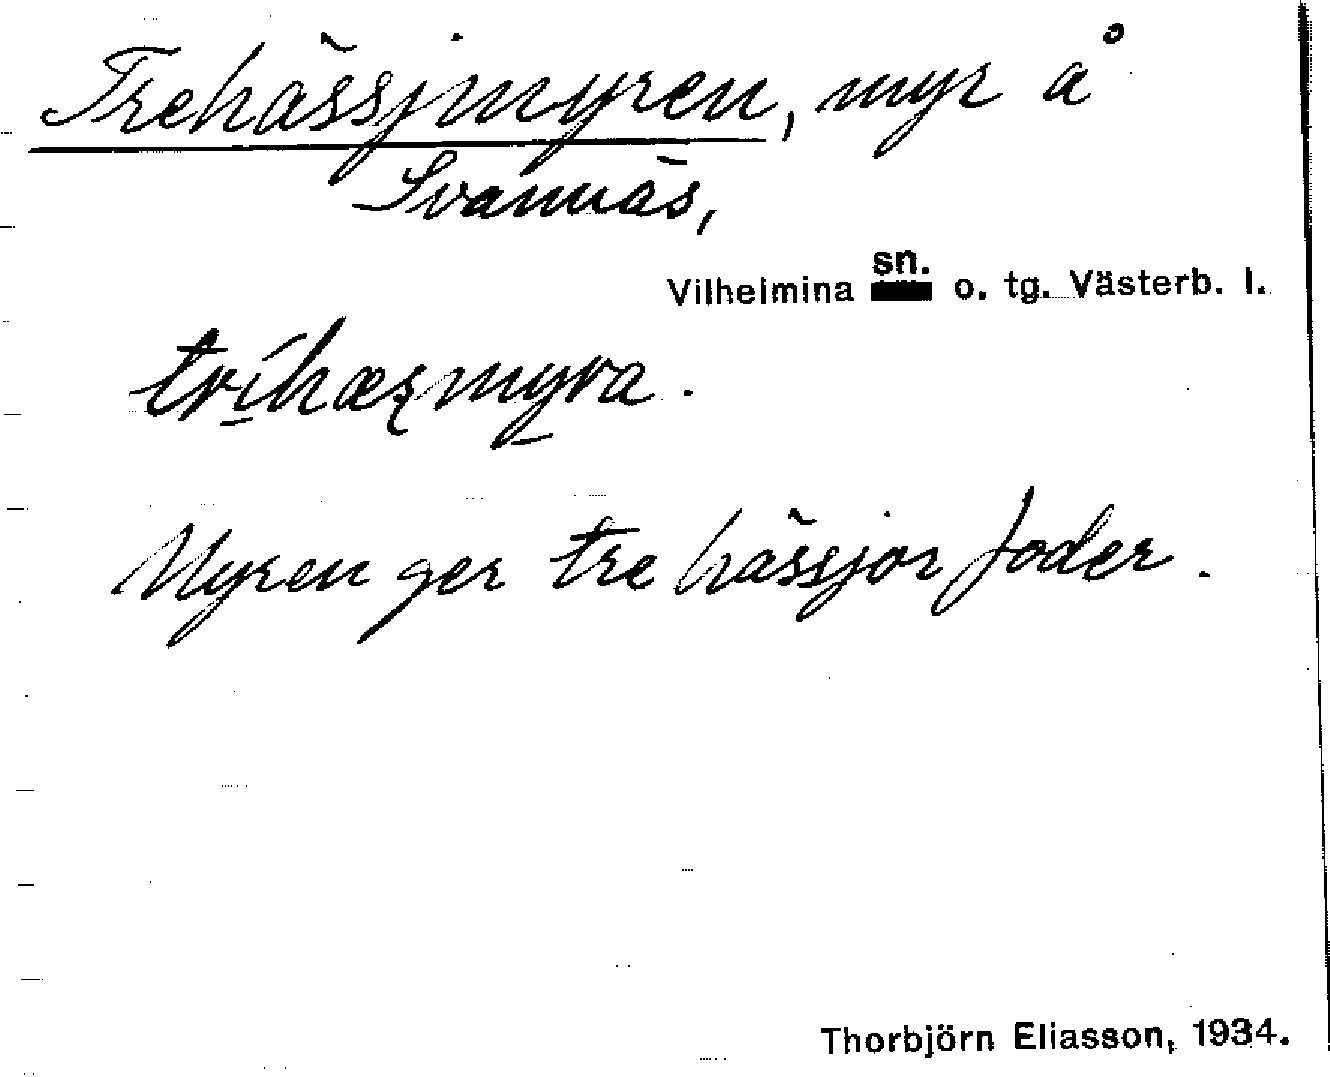 Trehässjmyren, myr å
Svannäs,
Vilhelmina sn. o. tg. Västerb. l.
tríhæʂmyra.
Myren ger tre hässjor foder.
Thorbjörn Eliasson, 1934.